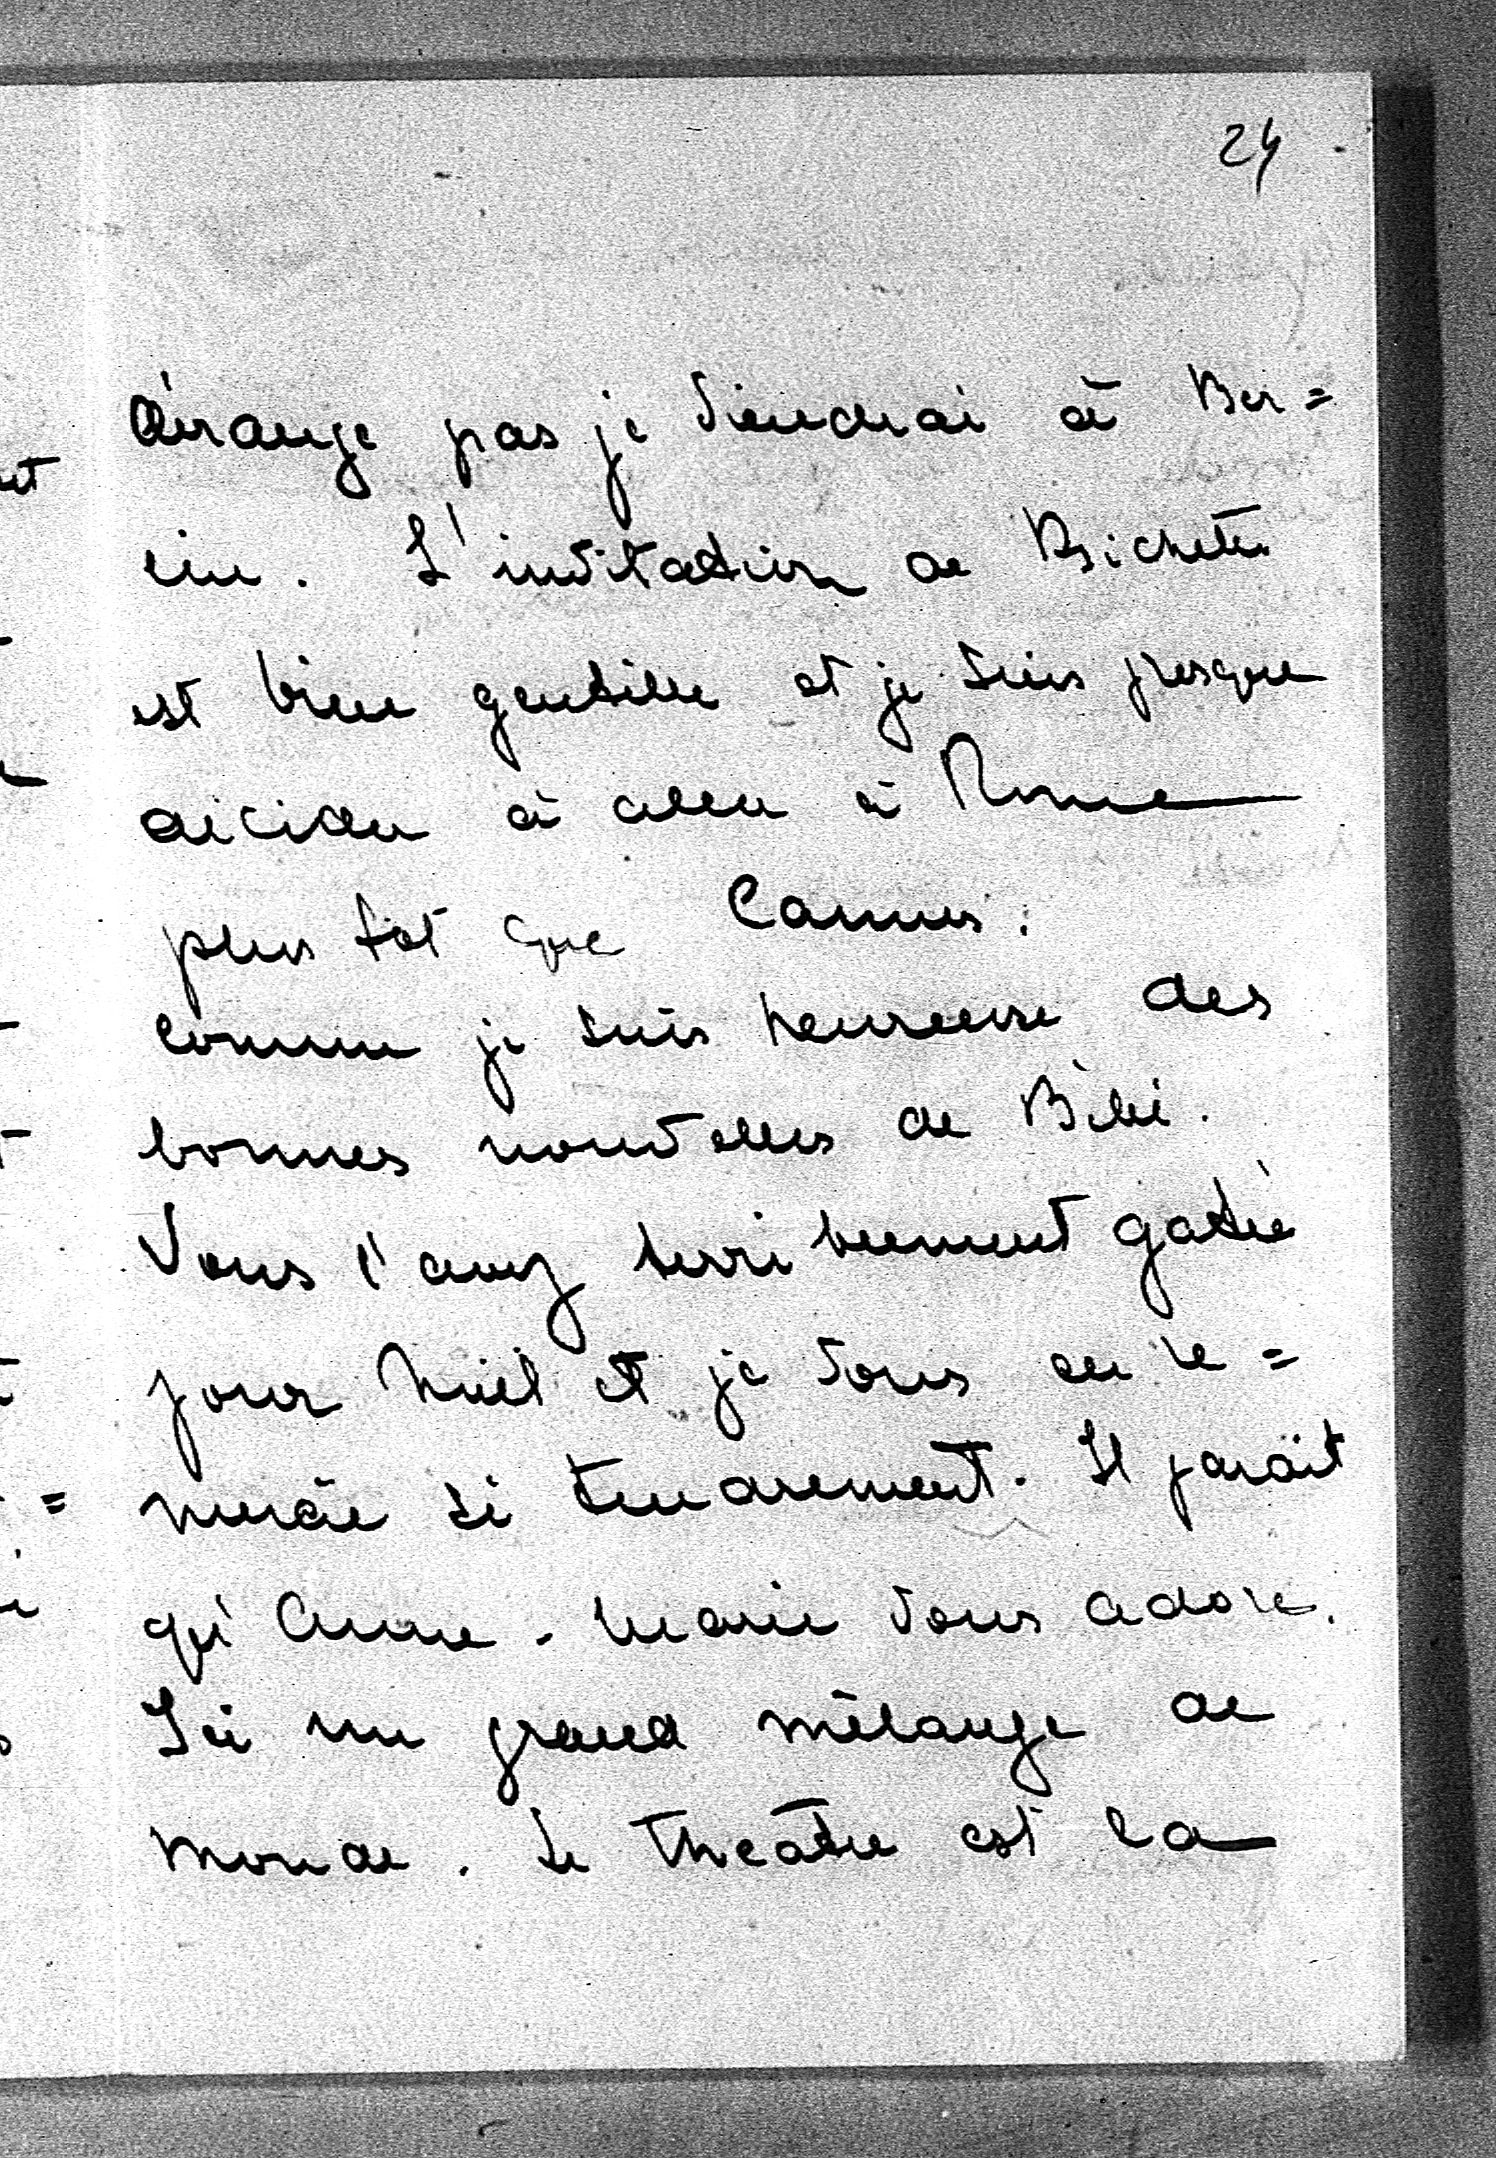 24
dérange pas je viendrai à Ber=
lin. L'invitation de Bichette
est bien gentille et je suis presque
décidée à aller à Rome
plus tôt que Cannes.
Comme je suis heureuse des
bonnes nouvelles de Bibi.
Vous l'avez terriblement gâtée
pour Noël et je vous en re=
mercie si tendrement. Il paraît
qu'Anne-Marie vous adore.
Ici un grand mélange de
monde. Le Théâtre est la